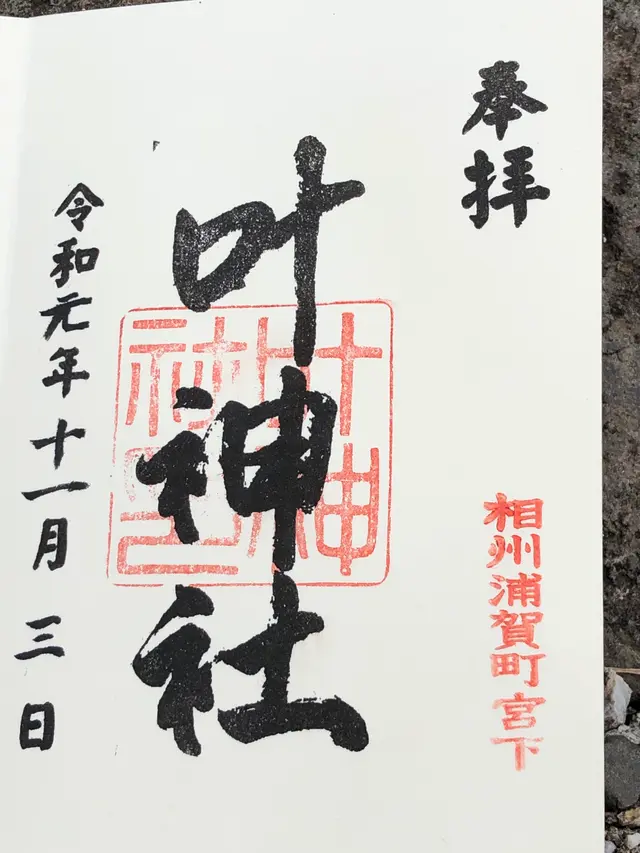 奉拝
相州浦賀町宮下
叶神社
叶神社印
令和元年十一月三日